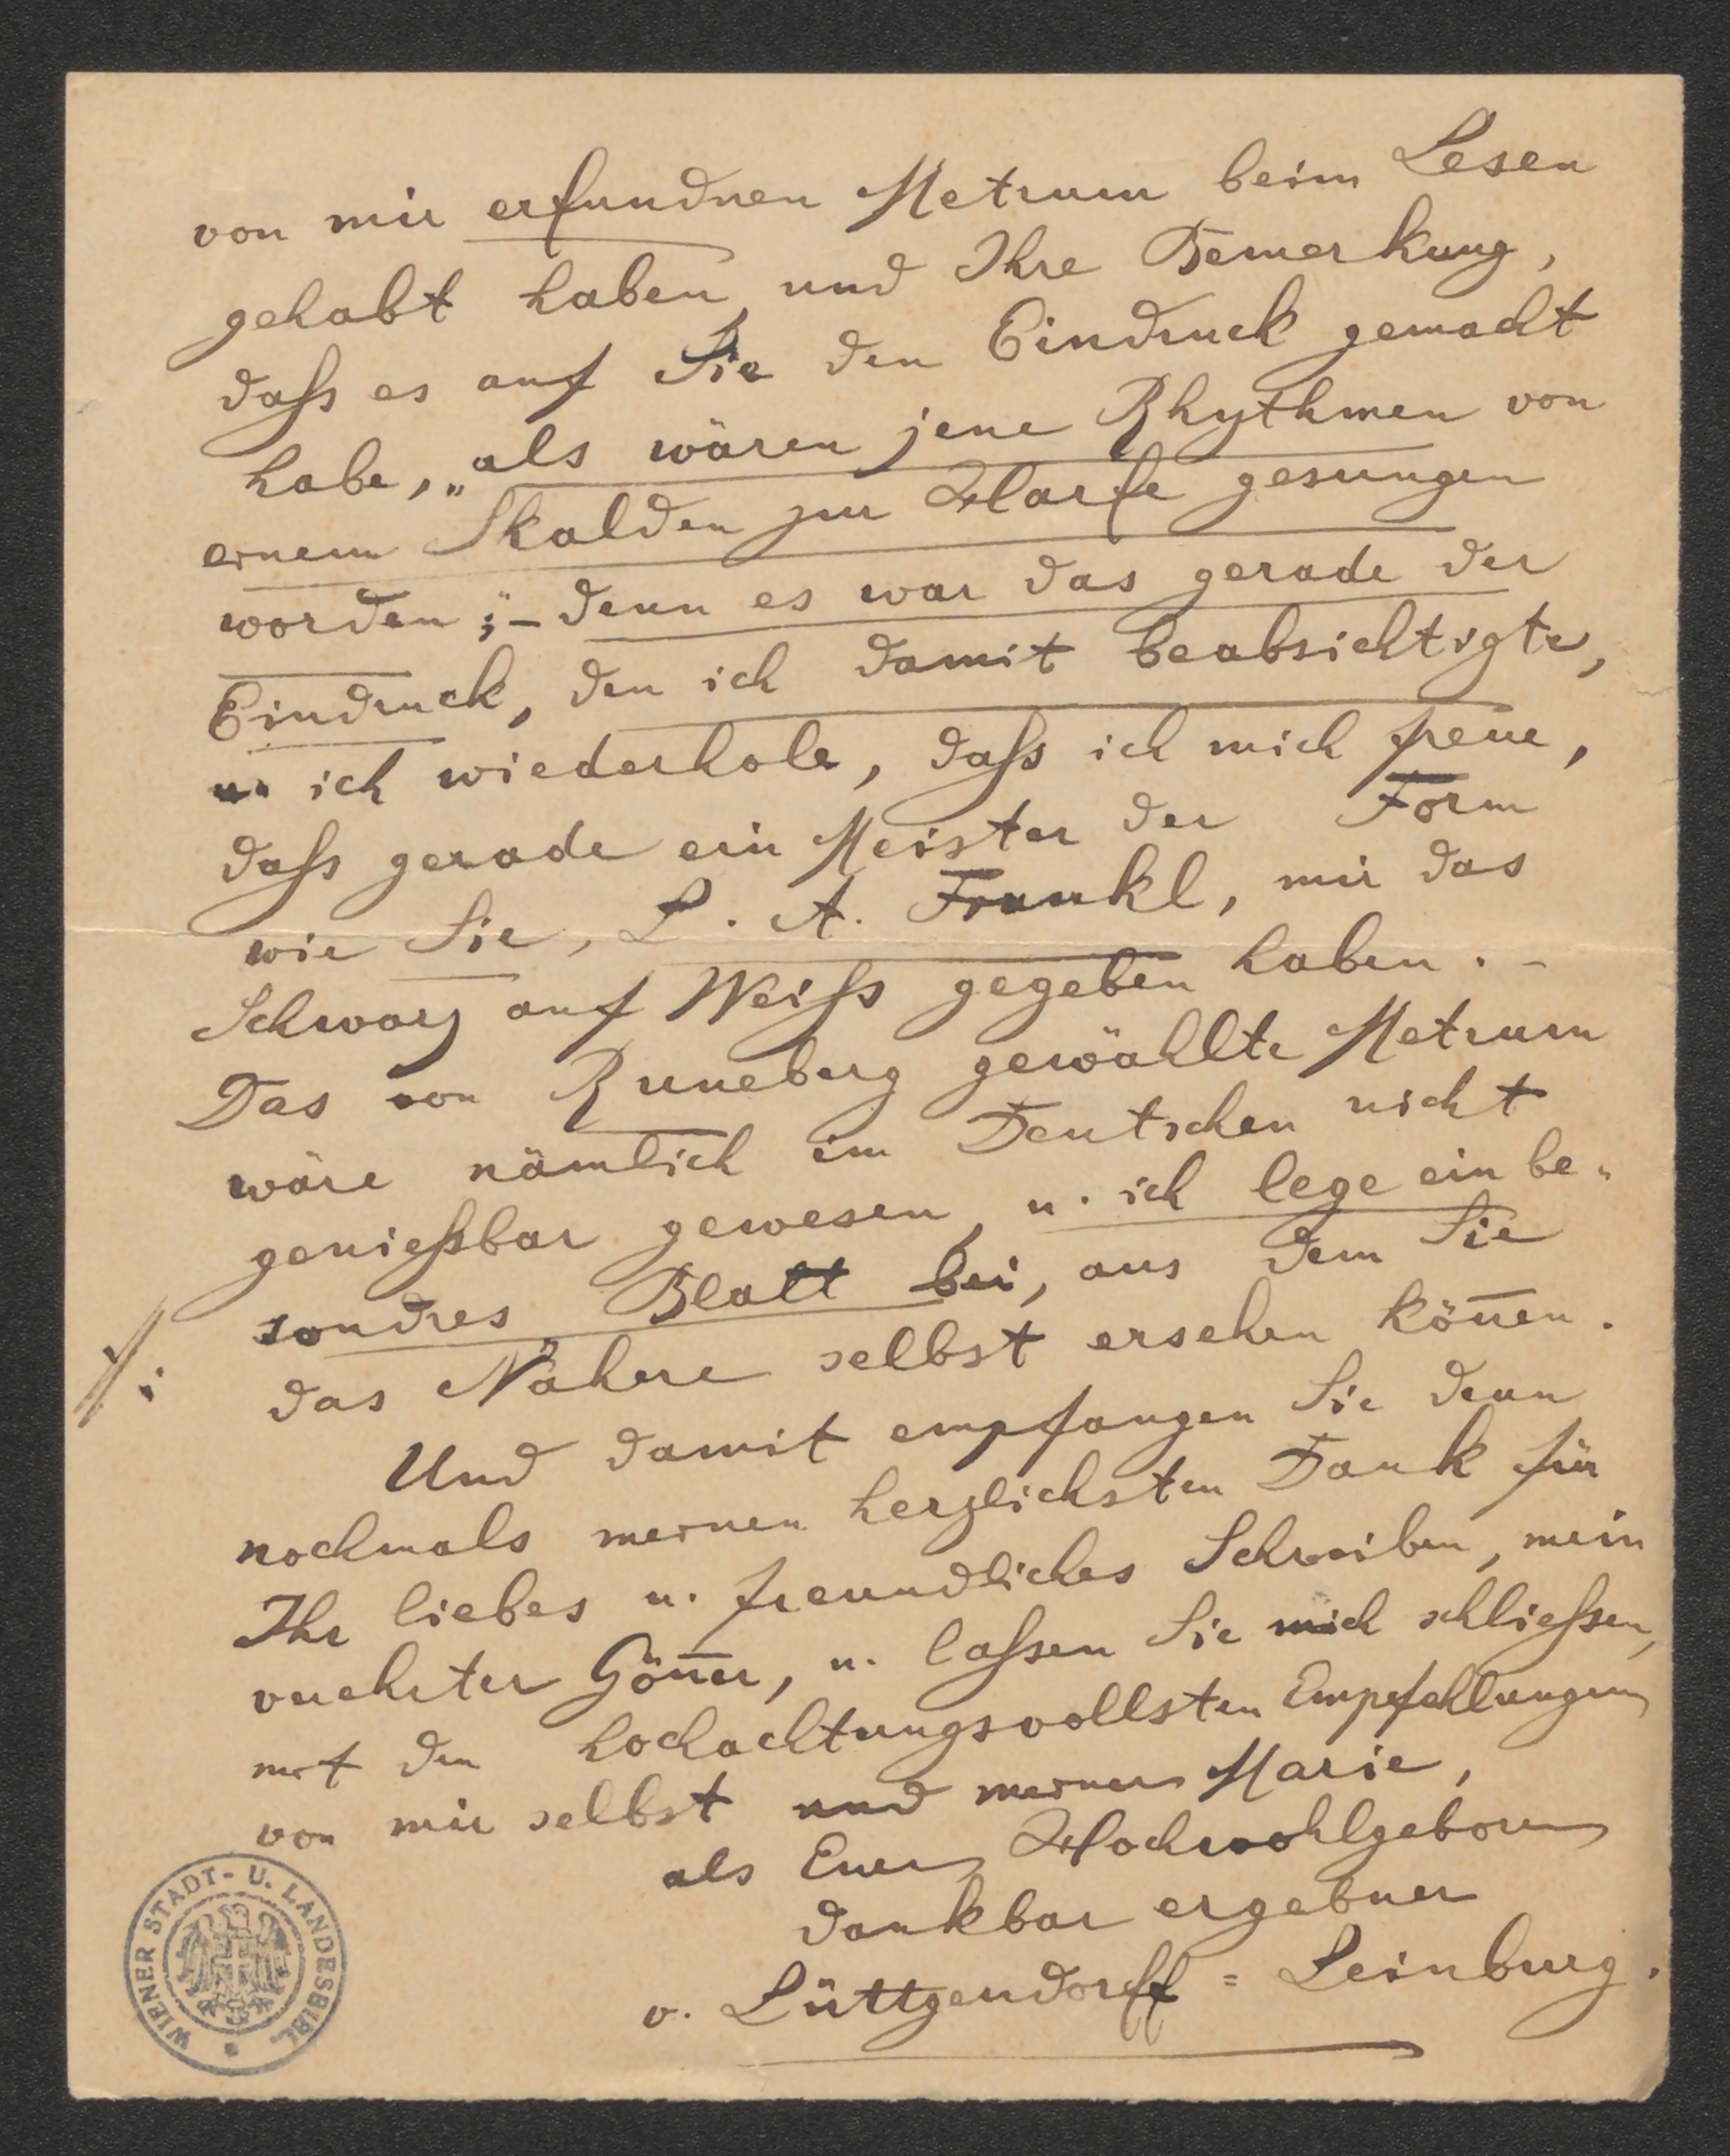 von mir erfundnen Metrum beim Lesen
gehabt haben, und Ihre Bemerkung,
daſs es auf Sie den Eindruck gemacht
habe, „als wären jene Rhythmen von
einem Skalden zur Harfe gesungen
worden;" – denn es war das gerade der
Eindruck, den ich damit beabsichtigte,
u. ich wiederhole, daſs ich mich freue,
daſs gerade ein Meister der Form
wie Sie, L. A. Frankl, mir das
Schwarz auf Weiſs gegeben haben. –
Das von Runeberg gewählte Metrum
wäre nämlich im Deutschen nicht
genieſsbar gewesen, u. ich lege ein be-
sondres Blatt bei, aus dem Sie
das Nähere selbst ersehen kön̄en.
Und damit empfangen Sie denn
nochmals meinen herzlichsten Dank für
Ihr liebes u. freundliches Schreiben, mein
verehrter Gön̄er, u. laſsen Sie mich schlieſsen,
mit den hochachtungsvollsten Empfehlungen
von mir selbst und meiner Marie,
als Euer Hochwohlgeboren
dankbar ergebner
v. Lüttgendorff = Leinburg.
WIENER STADT- U. LANDESBIBL.